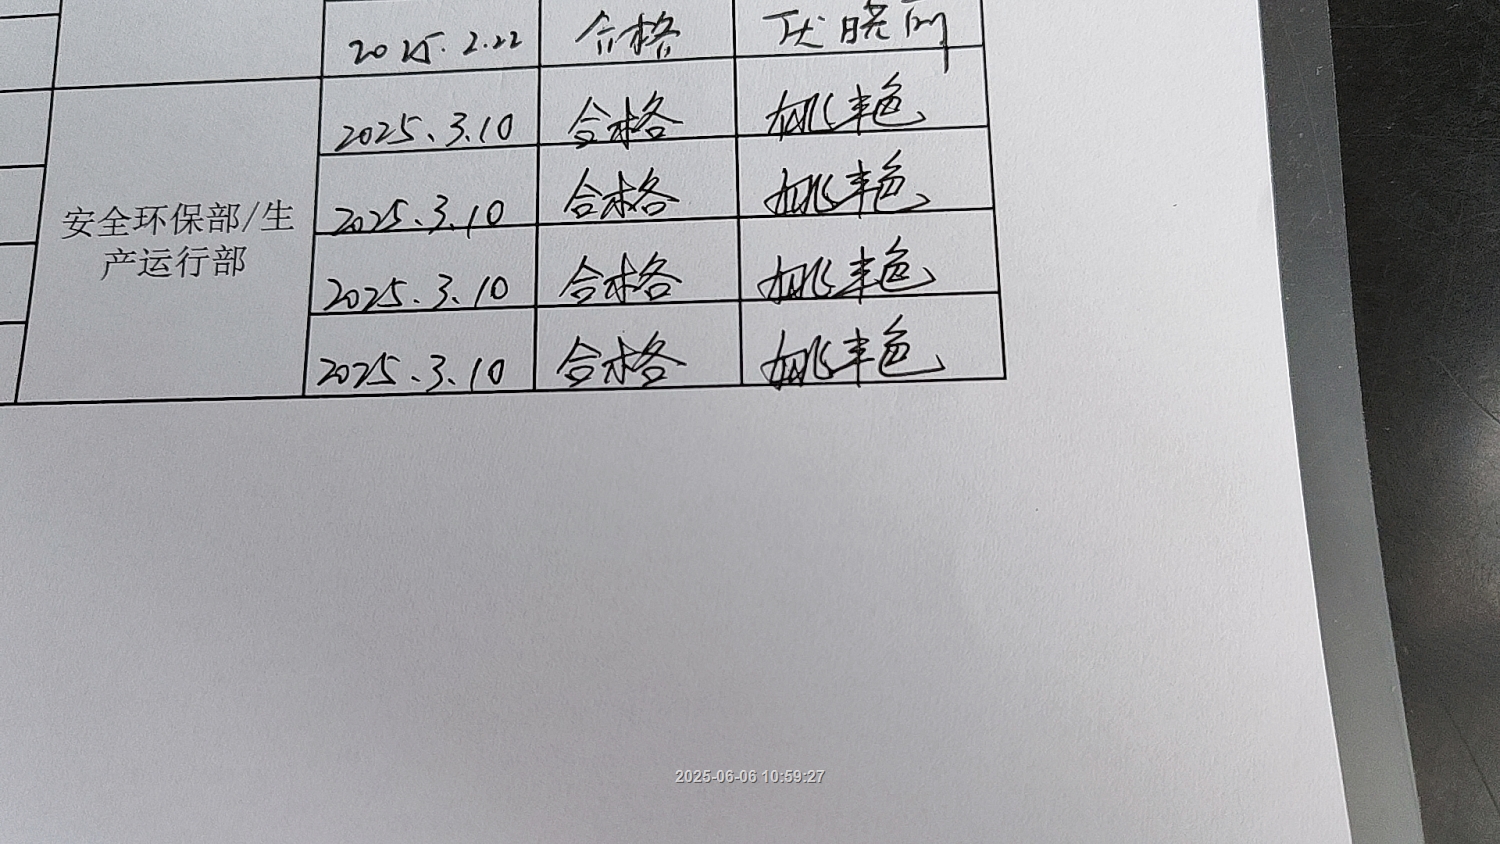 2025.2.22 合格
2025.3.10 合格 姚丰色
安全环保部/生
产运行部
2025.3.10 合格 姚丰色
2025.3.10 合格 姚丰色
2025.3.10 合格 姚丰色
2025-06-06 10:59:27